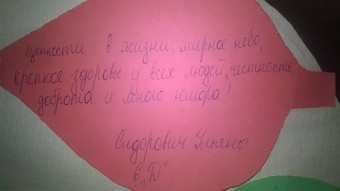 ценности: в жизни мирное небо,
крепкое здоровье у всех людей, честность,
доброта и много юмора!
Сидорович Ульяна
6 „Д"